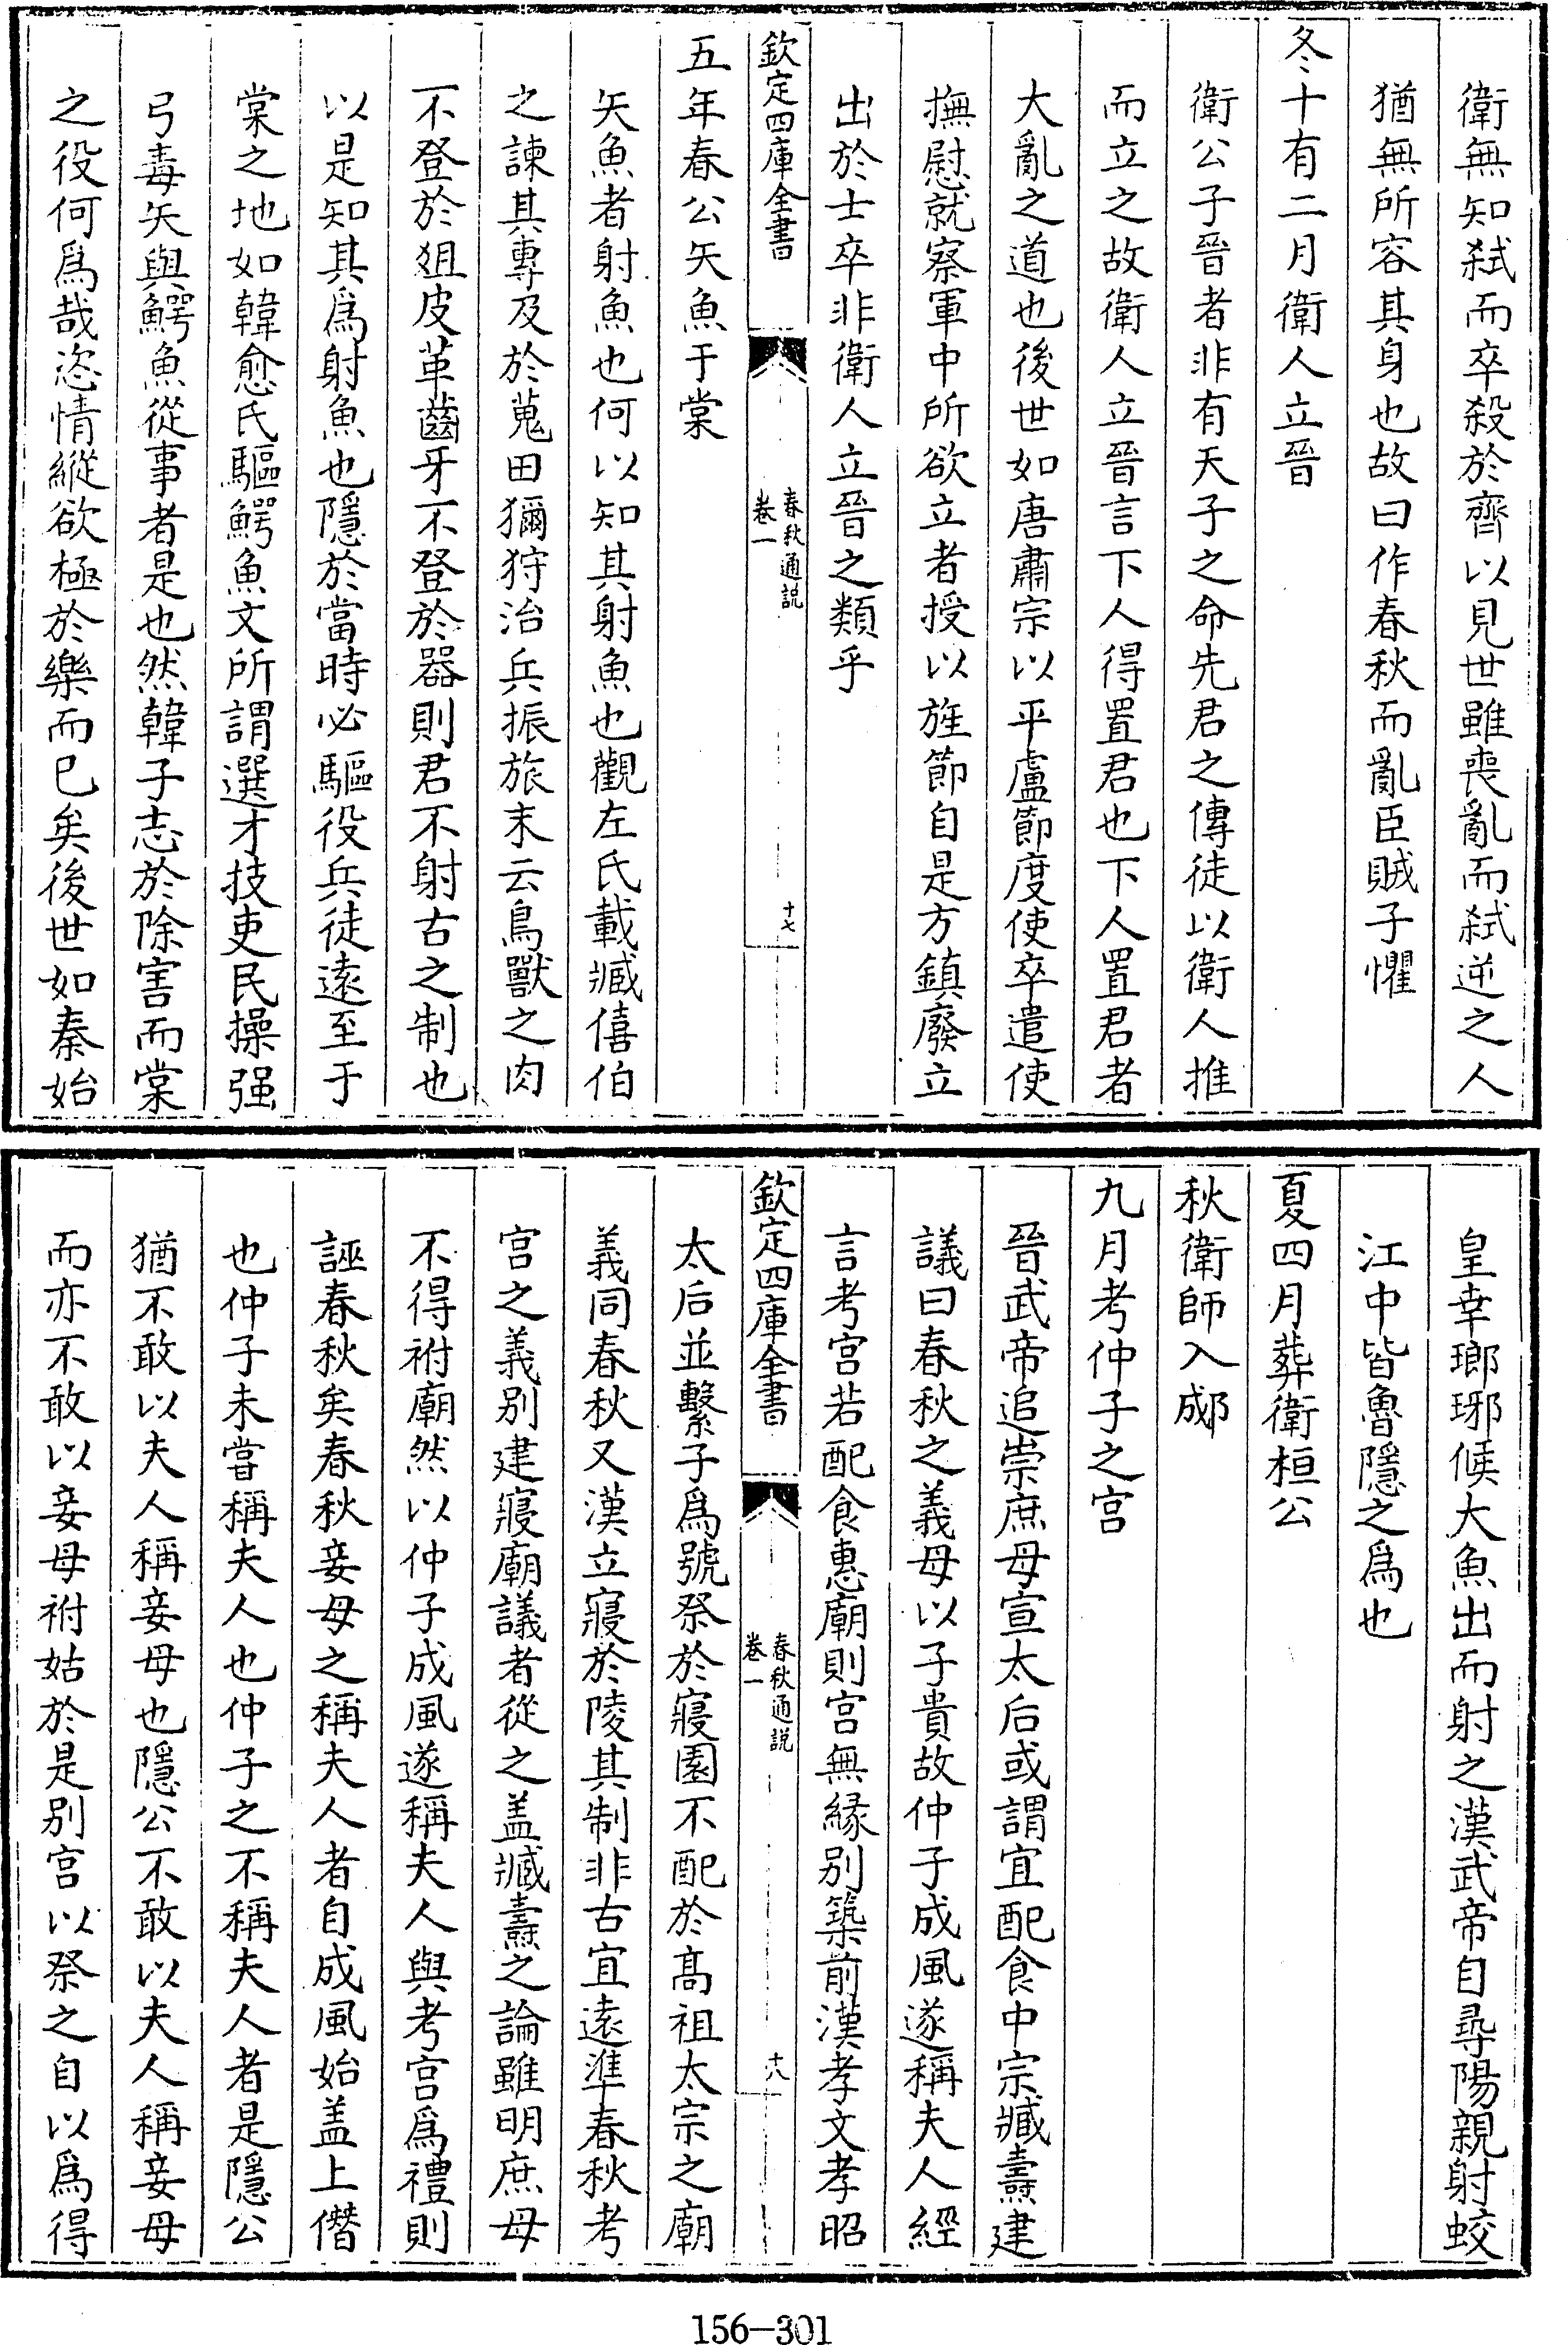 衛無知弑而卒殺於齊以見世雖喪亂而弑逆之人
猶無所容其身也故曰作春秋而亂臣賊子懼
冬十有二月衛人立晉
衛公子晉者非有天子之命先君之傳徒以衛人推
而立之故衛人立晉言下人得置君也下人置君者
大亂之道也後世如唐肅宗以平盧節度使卒遣使
撫慰就察軍中所欲立者授以旌節自是方鎮廢立
出於士卒非衛人立晉之類乎
欽定四庫全書
春秋通説
卷一
十七
五年春公矢魚于棠
矢魚者射魚也何以知其射魚也觀左氏載臧僖伯
之諫其專及於蒐田獮狩治兵振旅末云鳥獸之肉
不登於俎皮革齒牙不登於器則君不射古之制也
以是知其爲射魚也隱於當時必驅役兵徒遠至于
棠之地如韓愈氏驅鰐魚文所謂選才技吏民操强
弓毒矢與鰐魚從事者是也然韓子志於除害而棠
之役何爲哉恣情縱欲極於樂而巳矣後世如秦始
皇幸瑯琊候大魚出而射之漢武帝自尋陽親射蛟
江中皆魯隱之爲也
夏四月葬衛桓公
秋衛師入郕
九月考仲子之宫
晉武帝追崇庶母宣太后或謂宜配食中宗臧燾建
議曰春秋之義母以子貴故仲子成風遂稱夫人經
言考宫若配食惠廟則宫無縁别築前漢孝文孝昭
欽定四庫全書
春秋通説
卷一
十八
太后並繫子爲號祭於寢園不配於髙祖太宗之廟
義同春秋又漢立寢於陵其制非古宜遠準春秋考
宫之義别建寢廟議者從之盖臧燾之論雖明庶母
不得祔廟然以仲子成風遂稱夫人與考宫爲禮則
誣春秋矣春秋妾母之稱夫人者自成風始盖上僭
也仲子未嘗稱夫人也仲子之不稱夫人者是隱公
猶不敢以夫人稱妾母也隱公不敢以夫人稱妾母
而亦不敢以妾母祔姑於是别宫以祭之自以爲得
156-301